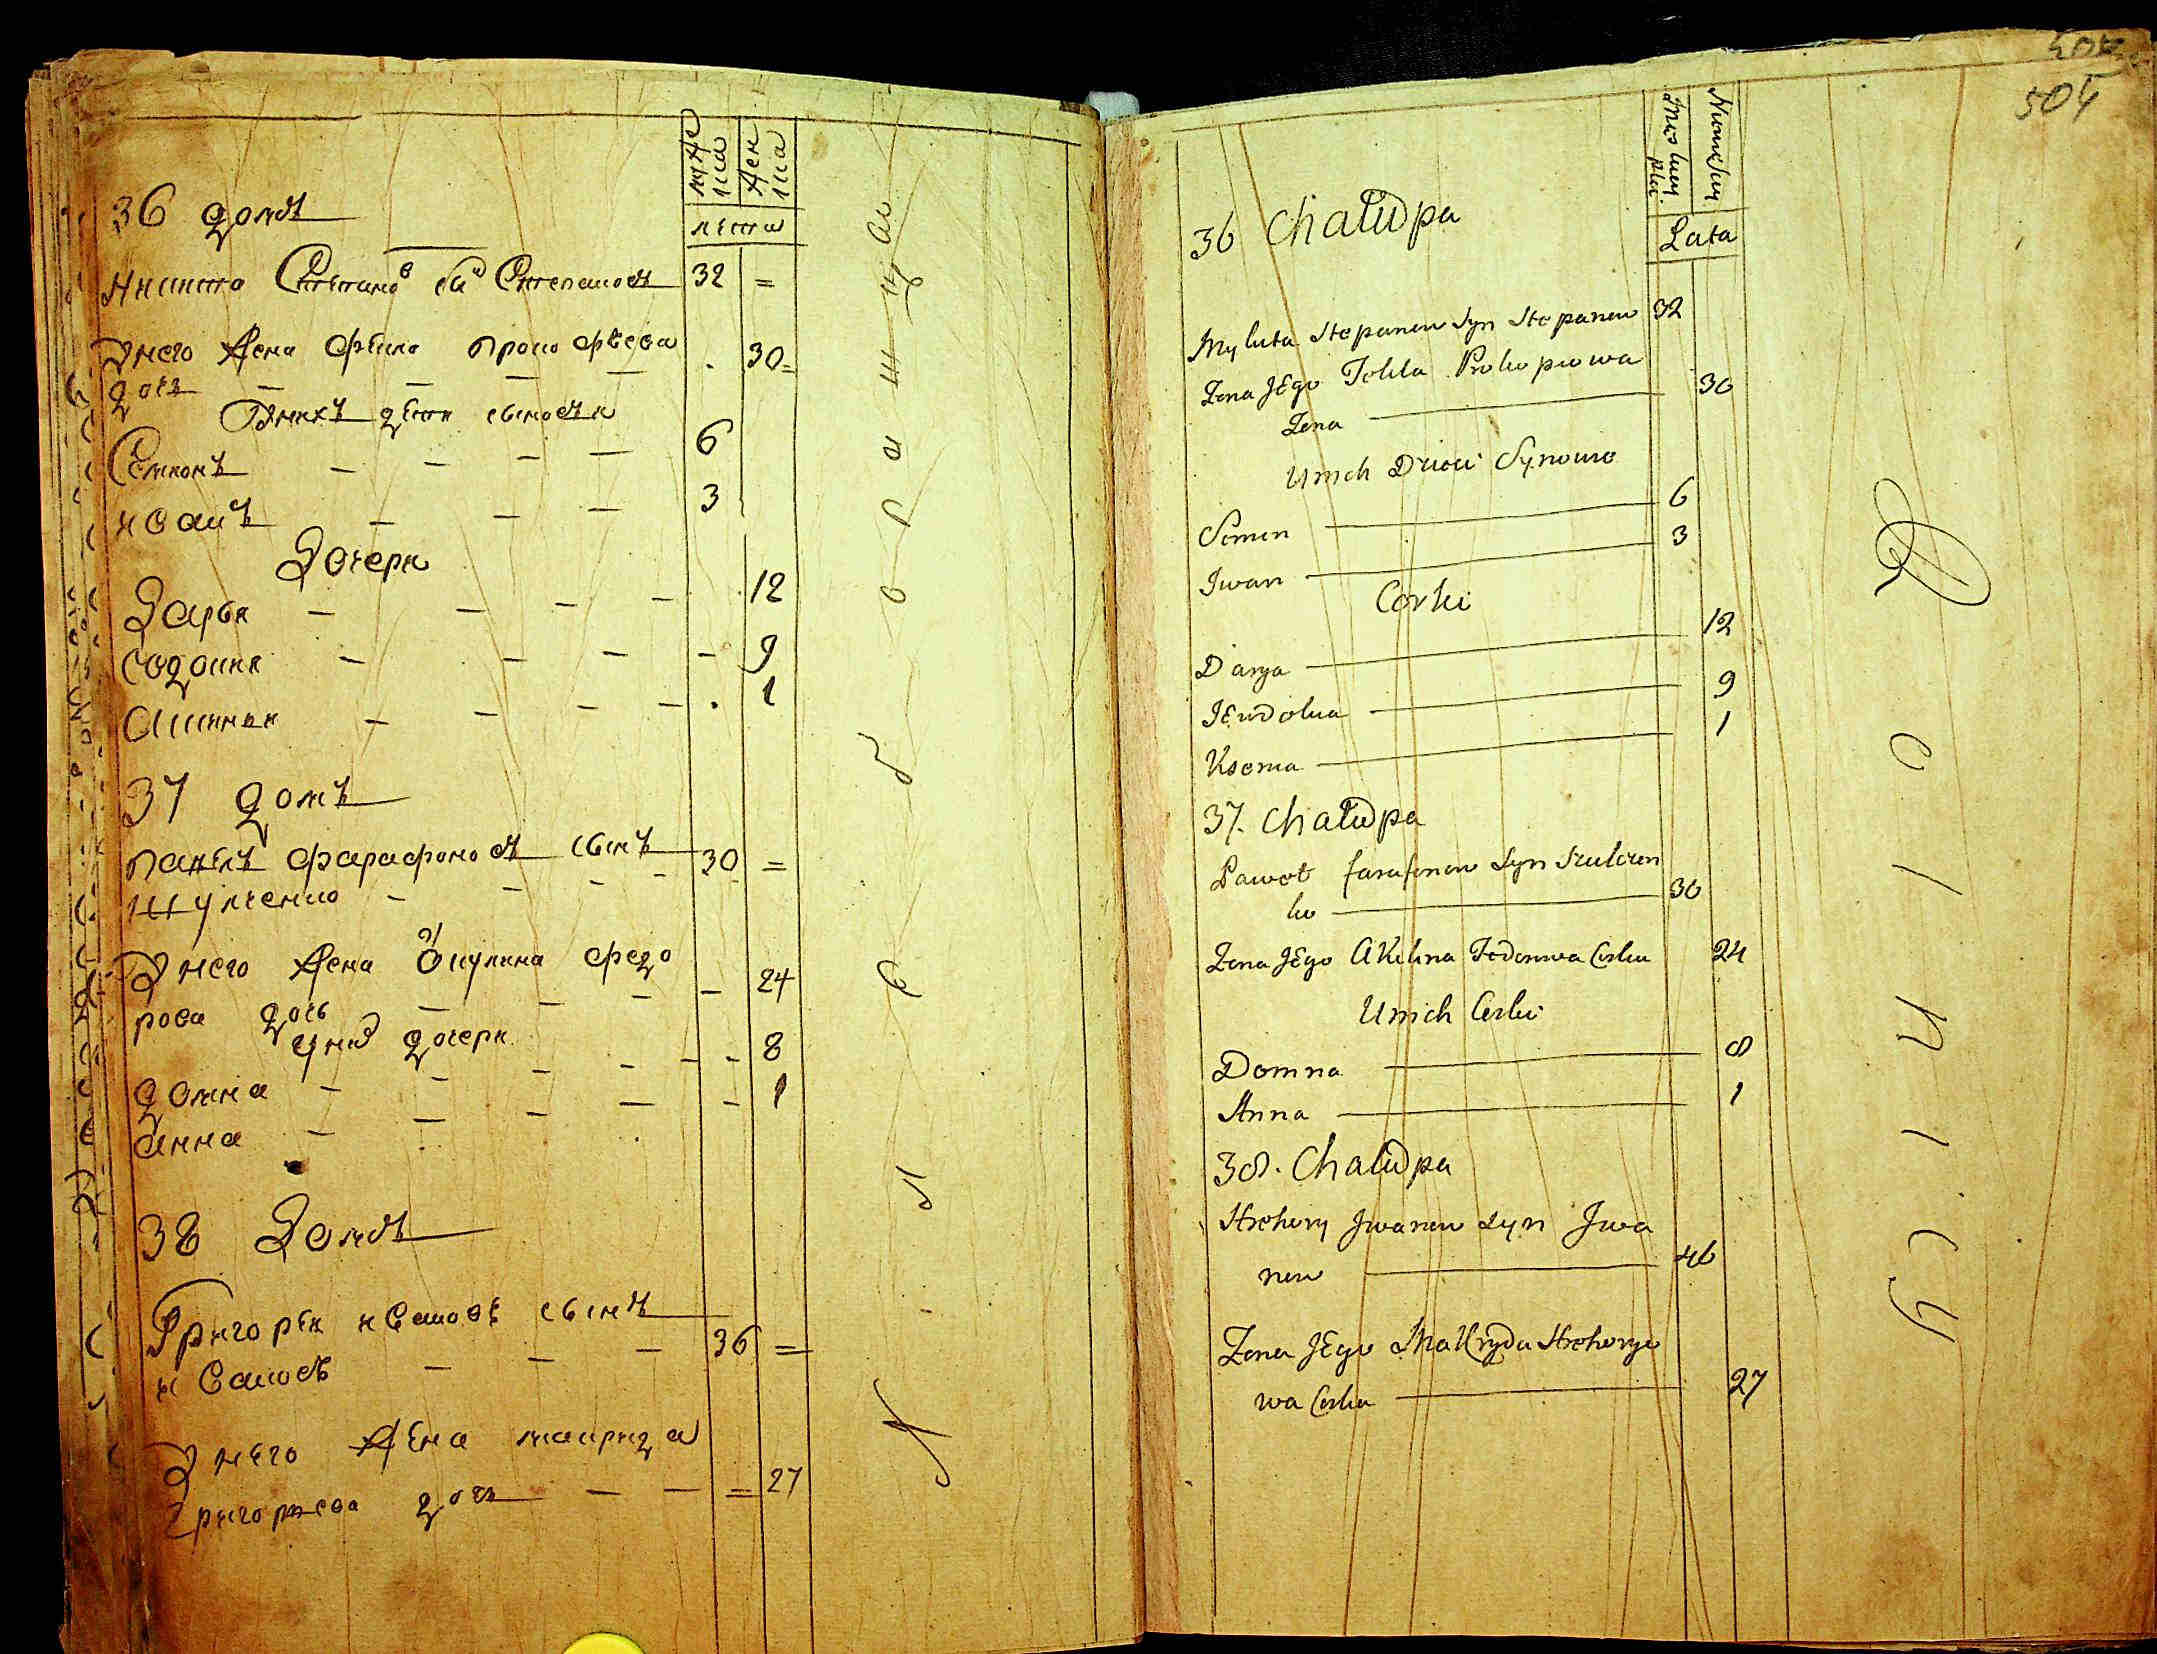 мужеска
женска
лета
36 домъ
Никита Степановъ сынъ Степановъ 32 =
У него жена Фекла Прокофьева . 30 =
дочь
У нихъ дети сыновья
Семионъ 6
иванъ 3
Дочери
Дарья 12
Овдокия 9
37 домъ
Павелъ фарафоновъ сынъ 30 =
Шулченко
У него жена Окулина федо
рова дочь 24
У них дочери
домна 8
анна 1
38 Домъ
Григореи иванове сынъ
ивановъ 36 =
У него жена макрида
григорьева дочь 27
504
Lata
36 Chałupa
Mykita Stepanow Syn Stepanow 32
Zona Jego Tekla Prokopiowa
Zona 30
Unich Dzieci Synowie
Semen 6
Iwan 3
Corki
Darya 12
Jewdokia 9
Ksenia 1
37. Chałupa
Paweł farafonow Syn Szulczen
ko 30
Zona Jego Akilina Fedorowa Corka 24
Unich Corki
Domna 8
Anna 1
38. Chałupa
Hrehory Iwanow Syn Iwa
now 46
Zona Jego Makryda Hrehorye
wa Corka 27